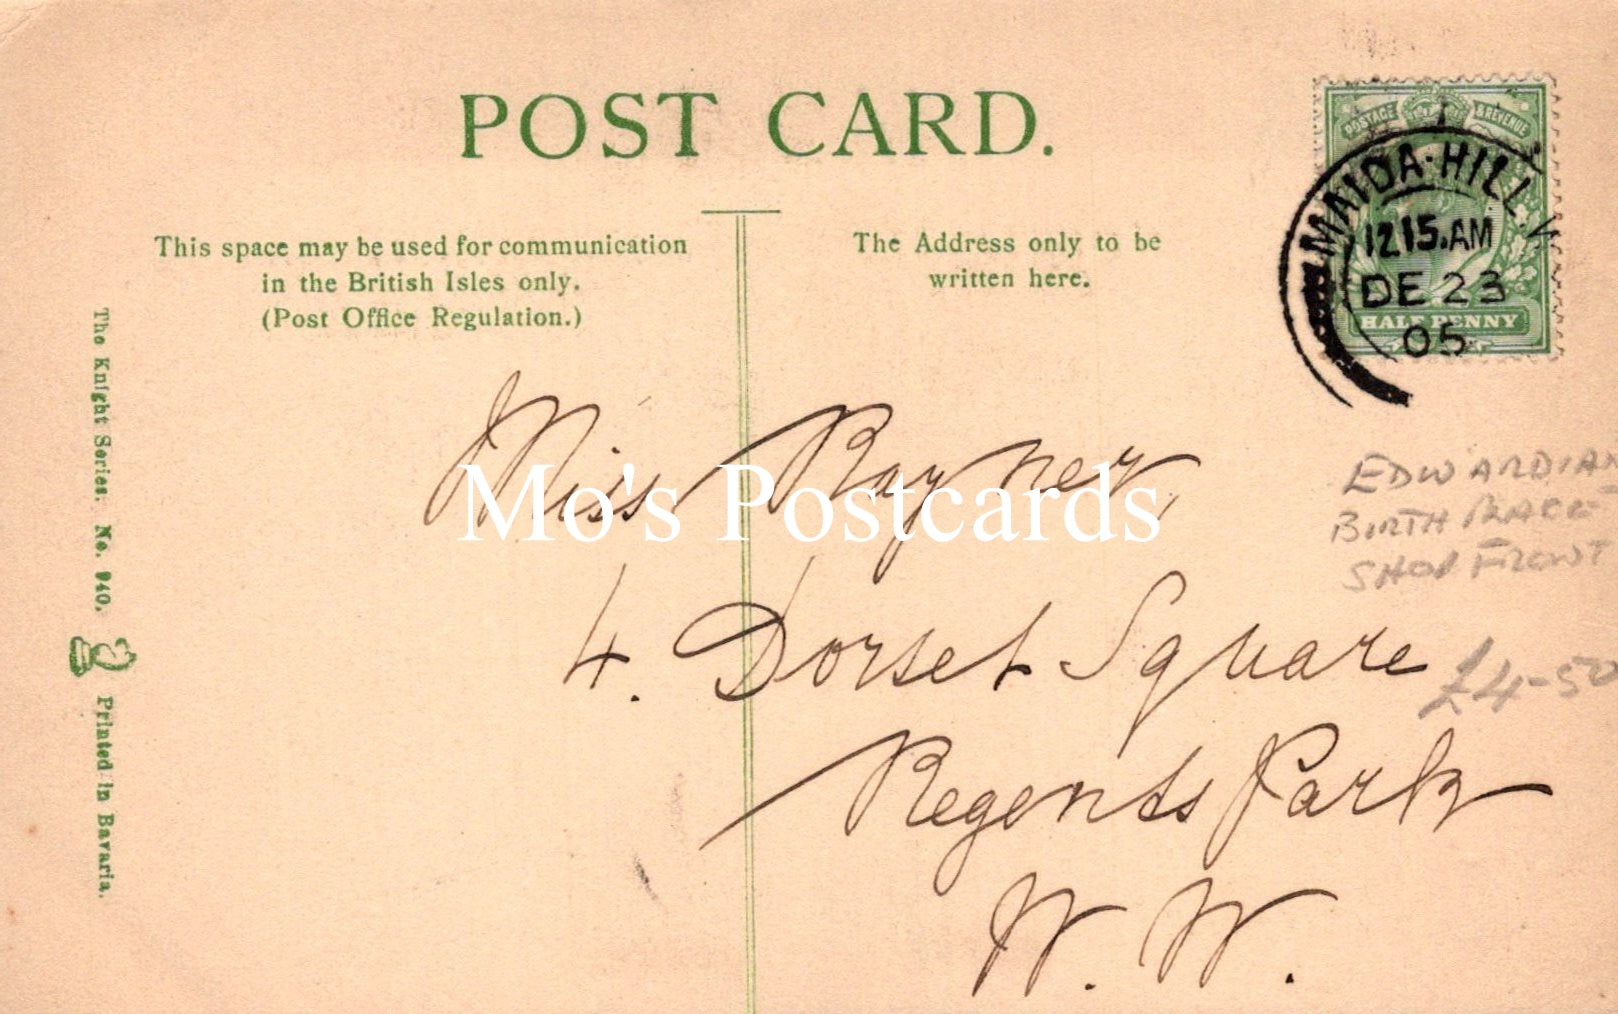 POST CARD.
This space may be used for communication
in the British Isles only.
(Post Office Regulation.)
The Address only to be
written here.
POSTAGE & REVENUE
MAIDA·HILL.W
1215.AM
DE 23
05
HALF PENNY
The Knight Series. No. 940. Printed in Bavaria.
Miss Rayner,
4. Dorset Square
Regents Park
N. W.
EDWARDIAN
BIRTH PLACE
SHOP FRONT
£4-50
Mo's Postcards